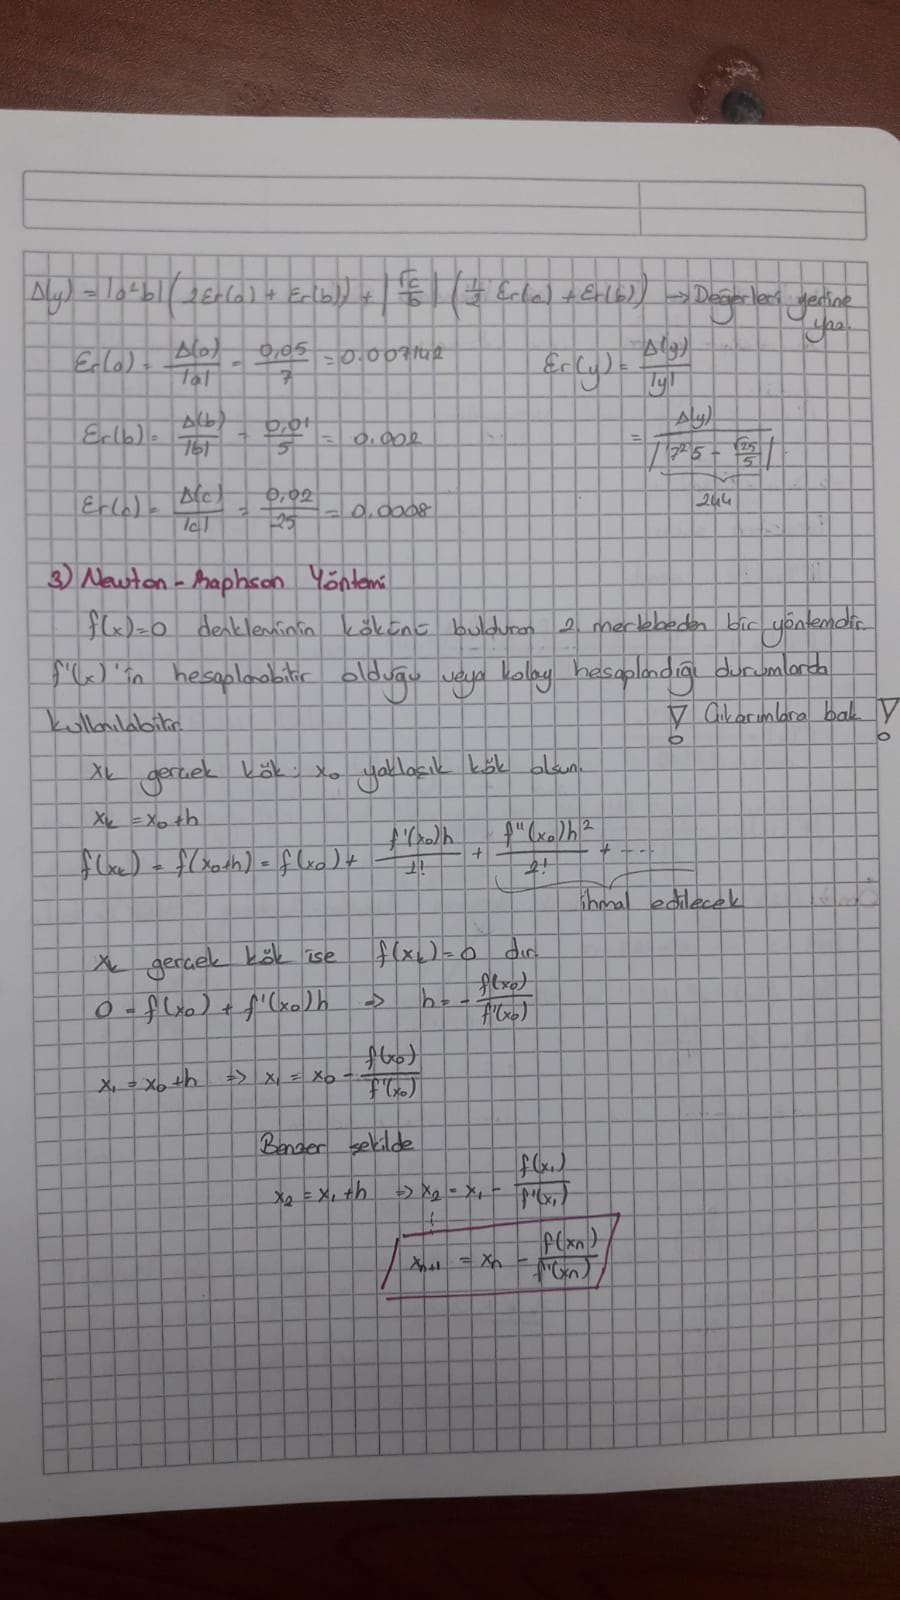 Δ(y) = |a²b| (2Er(a) + Er(b)) + |√c/b| (1/2 Er(a) + Er(b)) → Değerleri yerine
yaz.
Er(a) = Δ(a)/|a| = 0,05/7 = 0.007142
Er(y) = Δ(y)/|y|
Er(b) = Δ(b)/|b| = 0,01/5 = 0.002
= Δ(y)/|7²5 - √25/5|
244
Er(b) = Δ(c)/|c| = 0,02/25 = 0,0008
3) Newton-Raphson Yöntemi
f(x)=0 denkleminin kökünü bulduran 2. mertebeden bir yöntemdir.
f'(x)'in hesaplanabilir olduğu veya kolay hesaplandığı durumlarda
kullanılabilir.
! Çıkarımlara bak !
xk gerçek kök; x0 yaklaşık kök olsun.
xk = x0+h
f(xk) = f(x0+h) = f(x0) + f'(x0)h/1! + f''(x0)h²/2! + ...
ihmal edilecek
xk gerçek kök ise f(xk)=0 dır.
0 = f(x0) + f'(x0)h => h = - f(x0)/f'(x0)
x1 = x0+h => x1 = x0 - f(x0)/f'(x0)
Benzer şekilde
x2 = x1+h => x2 = x1 - f(x1)/f'(x1)
⋮
xn+1 = xn - f(xn)/f'(xn)